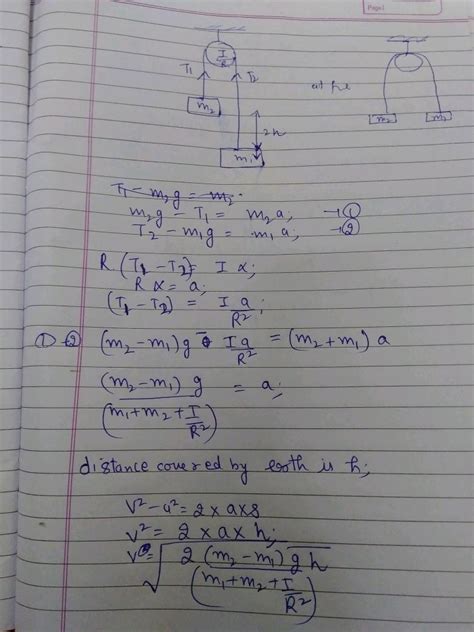 Page:
I/R
T₁
T₂
m₂
m₁
2h
m₂
m₂
T₁ - m₂g = m₂
m₂g - T₁ = m₂a; → ①
T₂ - m₁g = m₁a; → ②
R (T₁ - T₂) = I α;
R α = a;
(T₁ - T₂) = I a/R²;
① - ② (m₂ - m₁) g - I a/R² = (m₂ + m₁) a
(m₂ - m₁) g / (m₁ + m₂ + I/R²) = a;
distance covered by both is h;
V² - u² = 2 × a × s
V² = 2 × a × h;
V = √ 2 (m₂ - m₁) g h / (m₁ + m₂ + I/R²)